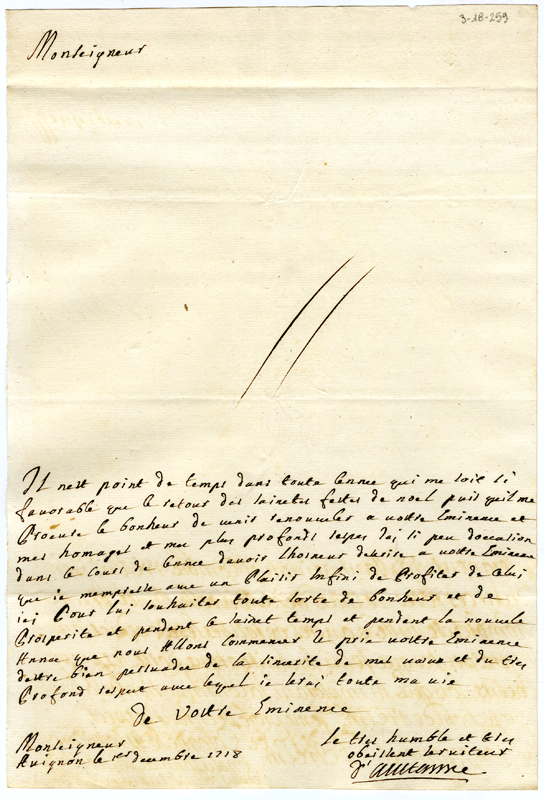 3-18-259
Monseigneur
Il nest point de temps dans toute lennee qui me soit si
favorable que le retour des sainctes festes de noel puis quil me
Procure le bonheur de venir renouveler a vostre Eminence et
mes homages et mes plus profonds respes Jai si peu doccasion
dans le cours de lennee davoir Lhoneur descrire a vostre Eminence
que ie mempresse avec un Plaisir Infini de Profiter de Celui
ici Pour lui souhaiter toute sorte de bonheur et de
Prosperite et pendent ce sainct temps et pendent la nouvele
Annee que nous Allons Commencer Je prie vostre Eminence
destre bien persuadee de la sincerite de mes vœux et du tres
Profond respect avec lequel ie serai toute ma vie
De Vostre Eminence
Monseigneur
Avignon le 1er decembre 1718
Le tres humble et tres
obeissent serviteur